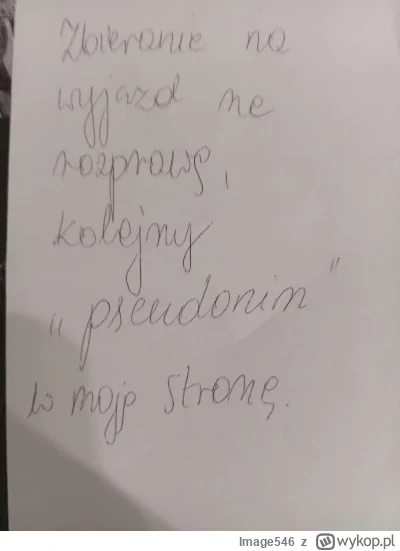 Zbieranie na
wyjazd na
rozprawę,
kolejny
"pseudonim"
w moją stronę.
Image546 z wykop.pl